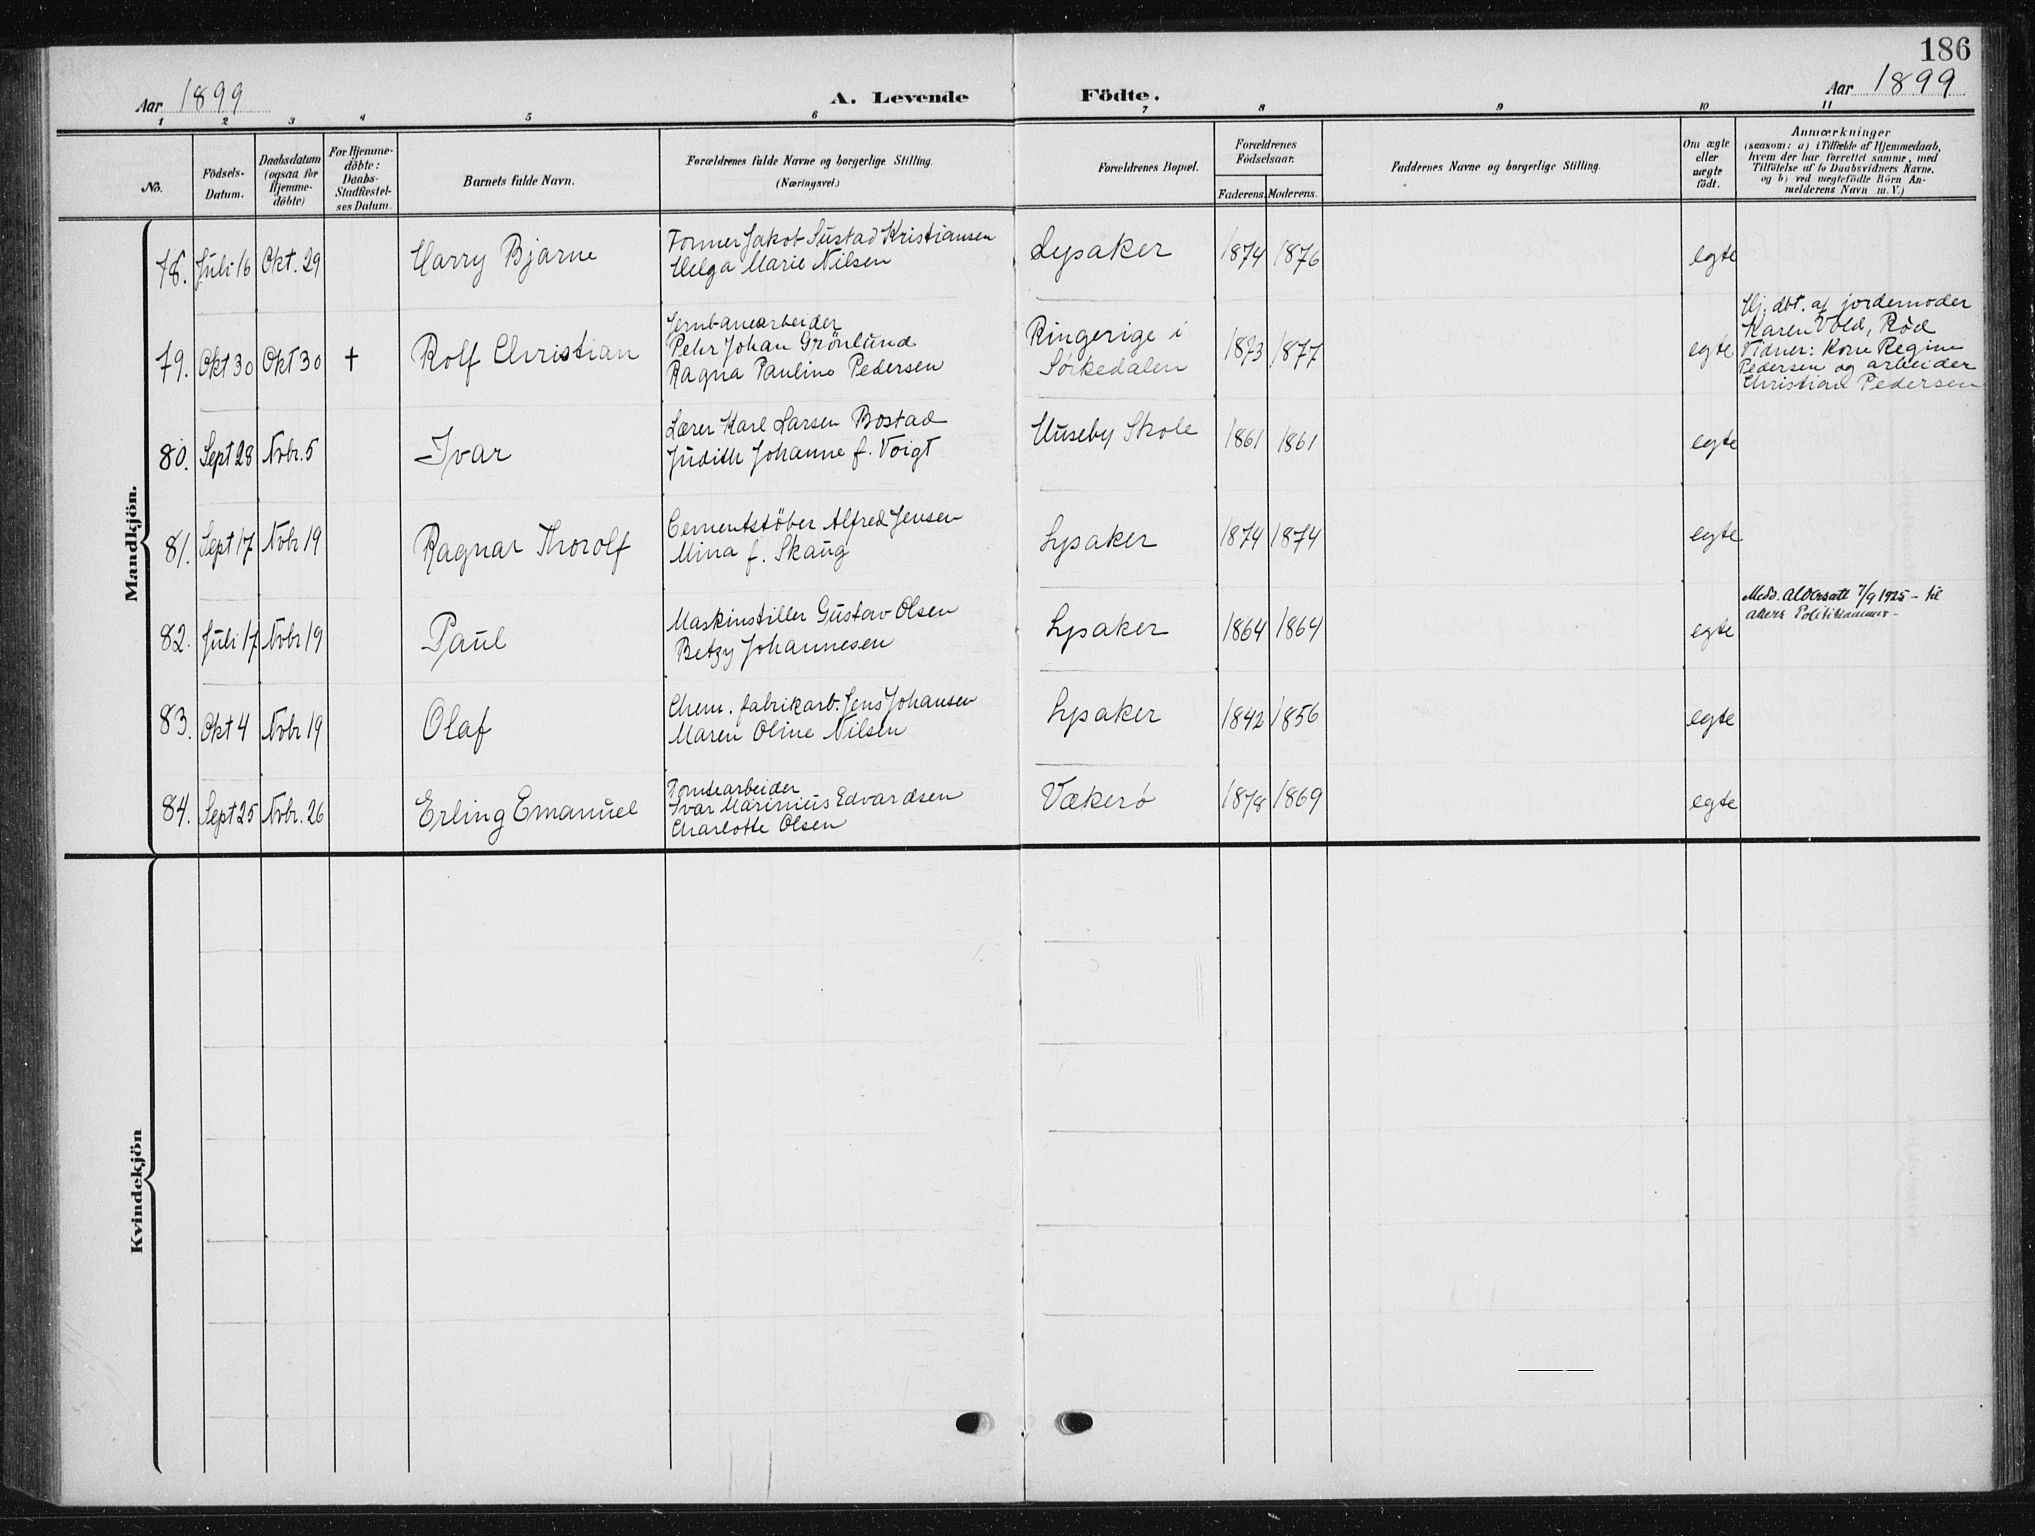 186
Aar 1899 A. Levende Födte. Aar 1899
1 2 3 4 5 6 7 8 9 10 11
No.
Födsels-
Datum.
Daabsdatum
(ogsaa for
Hjemme-
döbte)
For Hjemme-
döbte:
Daabs-
Stadfæstel-
ses Datum.
Barnets fulde Navn.
Forældrenes fulde Navne og borgerlige Stilling.
(Næringsvei.)
Forældrenes Bopæl.
Forældrenes
Födselsaar.
Faderens. Moderens.
Faddernes Navne og borgerlige Stilling.
Om ægte
eller
uægte
födt.
Anmærkninger
(saasom: a) i Tilfælde af Hjemmedaab,
hvem der har forrettet samme, med
Tilföielse af to Daabsvidners Navne,
og b) ved uægtefödte Börn An-
melderens Navn m. V.)
Mandkjön.
78. Juli 16 Okt. 29 Harry Bjarne
Former Jakob Sustad Kristiansen
Helga Marie Nilsen
Lysaker 1874 1876 egte
79. Okt 30 Okt 30 + Rolf Christian
Jernbanearbeider
Pehr Johan Grönlund
Ragna Pauline Pedersen
Ringerige i
Sørkedalen
1873 1877 egte
Hj. dbt. af jordemoder
Karen Vold, Röd
Vidner: Kone Regine
Pedersen og arbeider
Christian Pedersen
80. Sept 28 Novbr. 5 Ivar
Lærer Karl Larsen Bostad
Judith Johanne f. Voigt
Huseby Skole 1861 1861 egte
81. Sept 17 Novbr 19 Ragnar Thorolf
Cementstöber Alfred Jensen
Mina f. Skaug
Lysaker 1874 1874 egte
82. Juli 17 Novbr 19 Paul
Maskinstiller Gustav Olsen
Betzy Johannesen
Lysaker 1864 1864 egte
Medd. 7/9 1925 - til
Akers Politikammer -
83. Okt 4 Novbr 19 Olaf
Chem. fabrikarb. Jens Johansen
Maren Oline Nilsen
Lysaker 1842 1856 egte
84. Sept 25 Novbr. 26 Erling Emanuel
Tomtearbeider
Ivar Marinius Edvardsen
Charlotte Olsen
Vækerö 1878 1869 egte
Kvindekjön